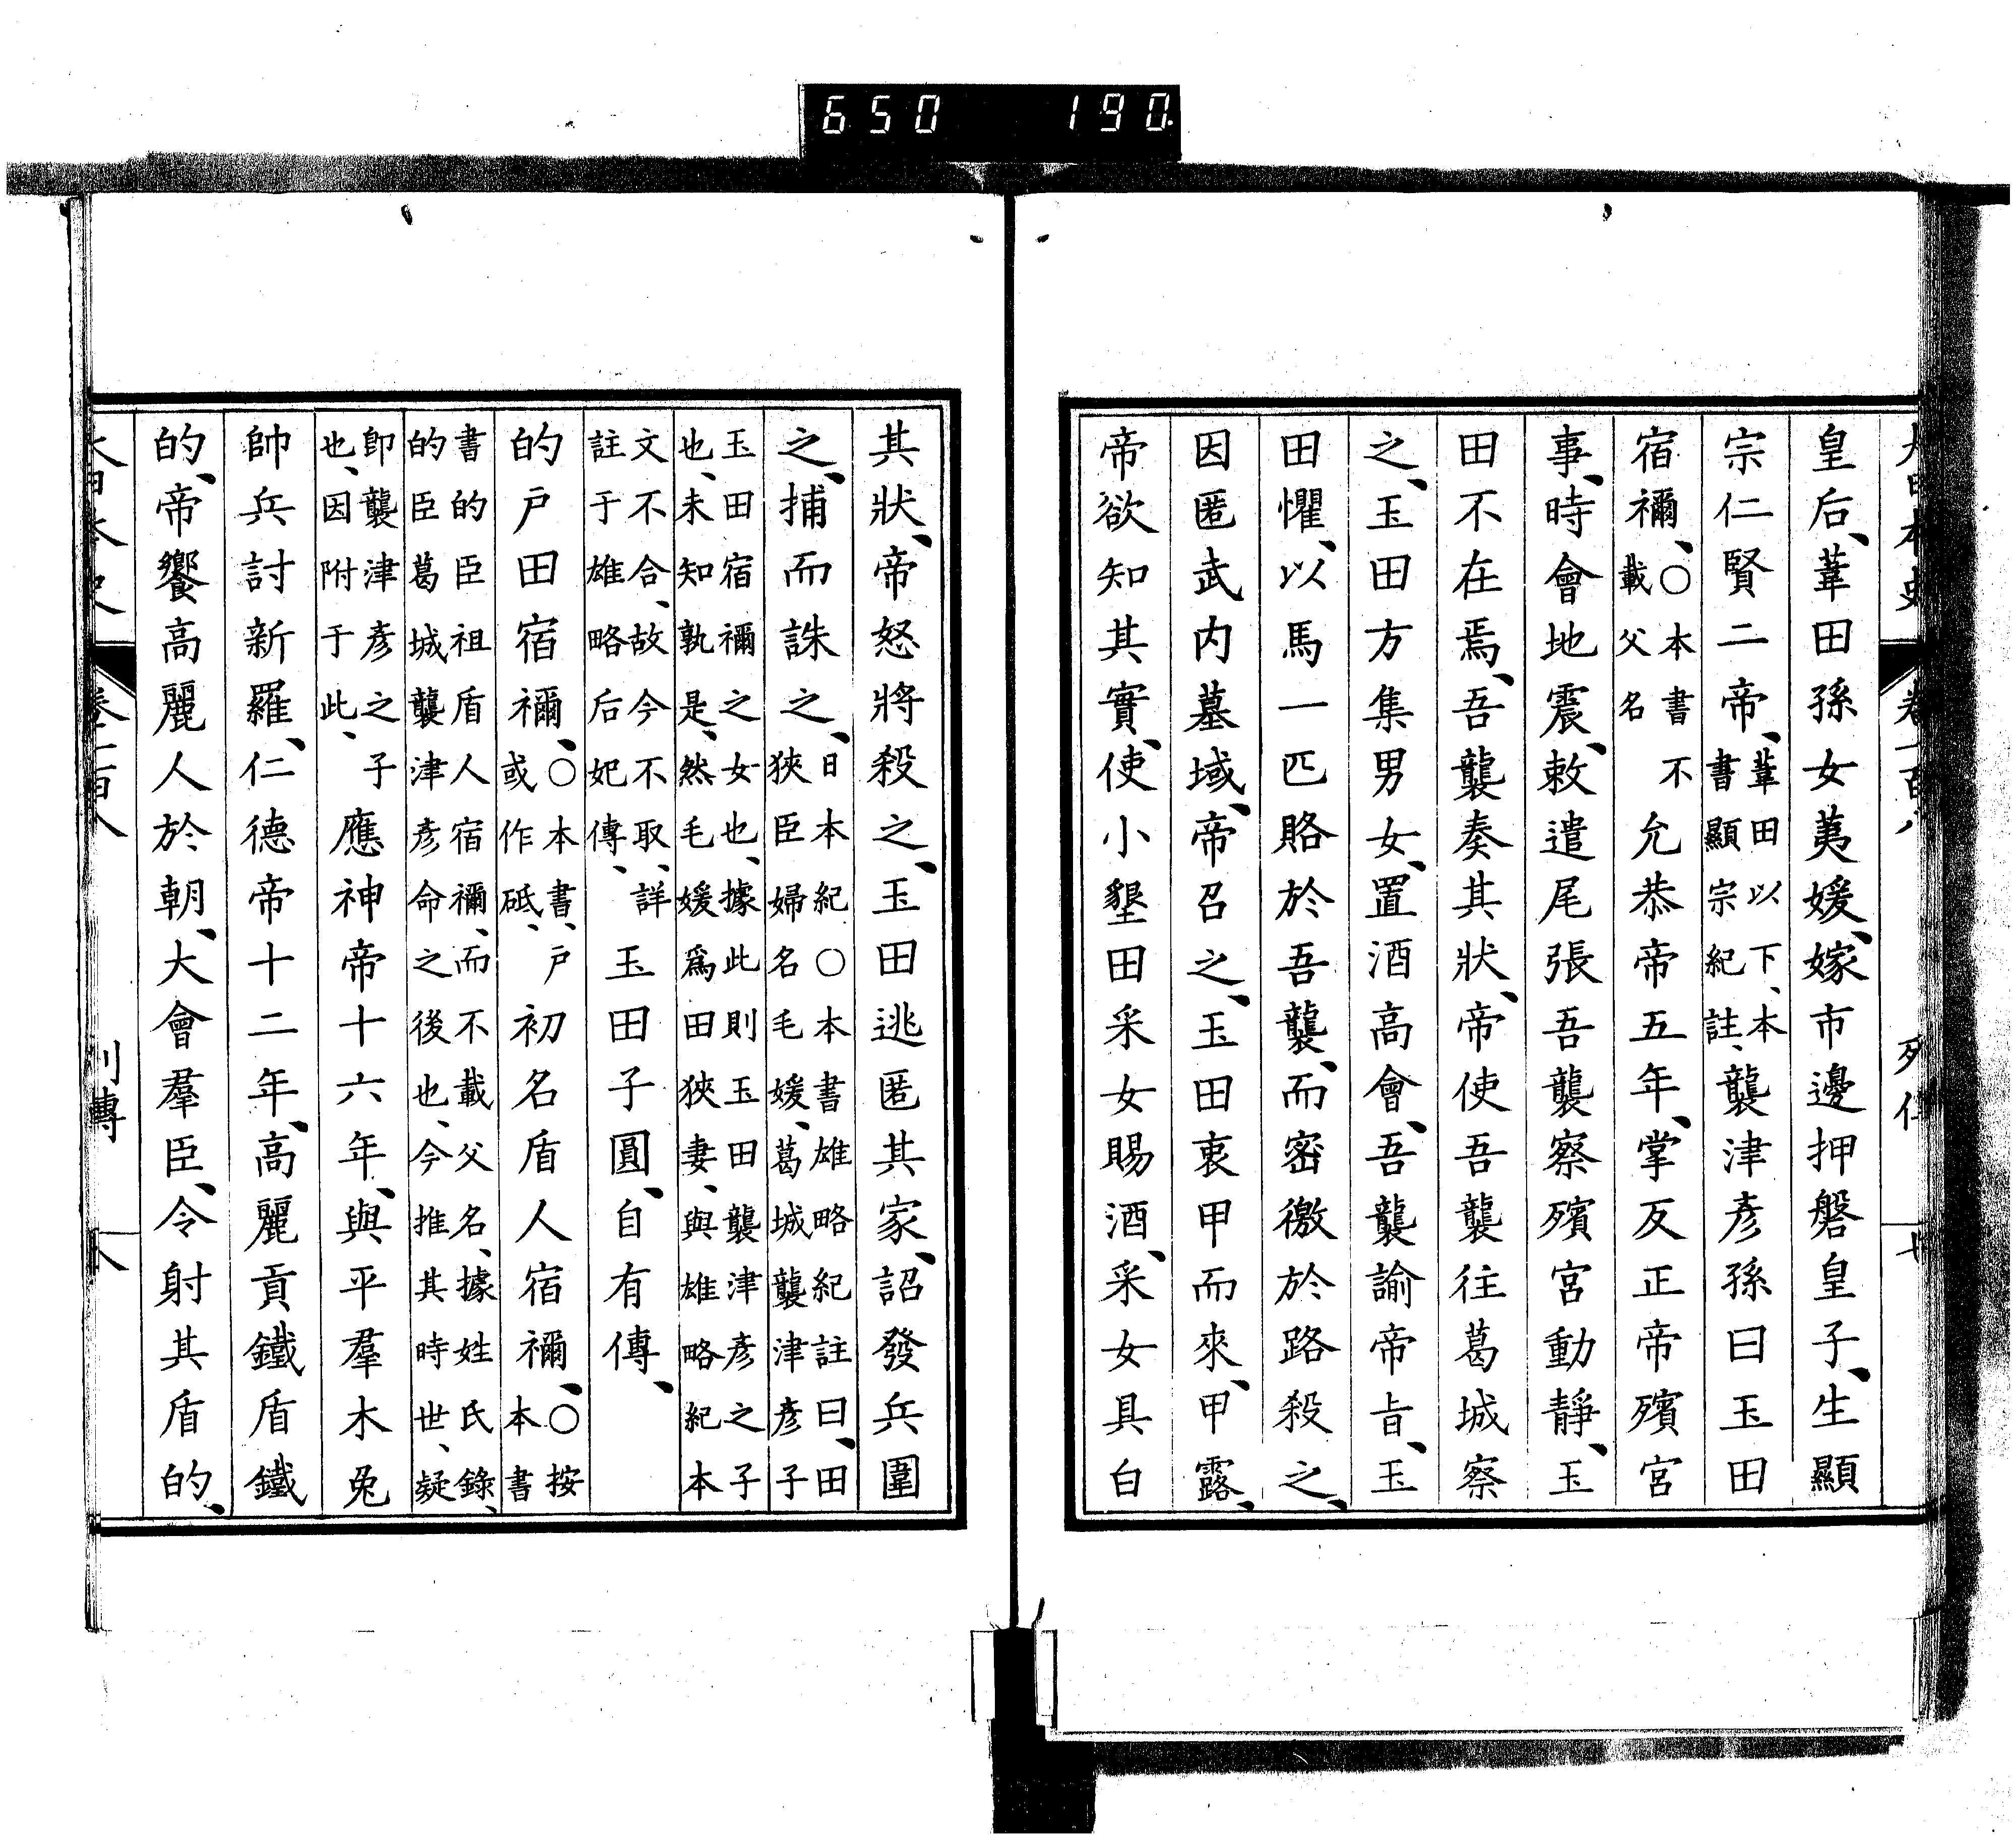 650 190
大日本史 卷一百八 列傳 七
皇后、葦田孫女荑媛、嫁市邊押磐皇子、生顯
宗仁賢二帝、葦田以下、本書顯宗紀註、襲津彥孫曰玉田
宿禰、〇本書不載父名允恭帝五年、掌反正帝殯宮
事、時會地震、敕遣尾張吾襲察殯宮動靜、玉
田不在焉、吾襲奏其狀、帝使吾襲往葛城察
之、玉田方集男女、置酒高會、吾襲諭帝旨、玉
田懼、以馬一匹賂於吾襲、而密徼於路殺之、
因匿武内墓域、帝召之、玉田衷甲而來、甲露、
帝欲知其實、使小墾田采女賜酒、采女具白
其狀、帝怒將殺之、玉田逃匿其家、詔發兵圍
之、捕而誅之、日本紀〇本書雄略紀註曰、田狹臣婦名毛媛、葛城襲津彥子
玉田宿禰之女也、據此則玉田襲津彥之子也、未知孰是、然毛媛爲田狹妻、與雄略紀本
文不合、故今不取、詳註于雄略后妃傳、玉田子圓、自有傳、
的戶田宿禰、〇本書、戶或作砥、初名盾人宿禰、〇按本書
書的臣祖盾人宿禰、而不載父名、據姓氏錄、的臣葛城襲津彥命之後也、今推其時世、疑
卽襲津彥之子也、因附于此、應神帝十六年、與平羣木兔
帥兵討新羅、仁德帝十二年、高麗貢鐵盾鐵
的、帝饗高麗人於朝、大會羣臣、令射其盾的、
大日本史 卷一百八 列傳 八